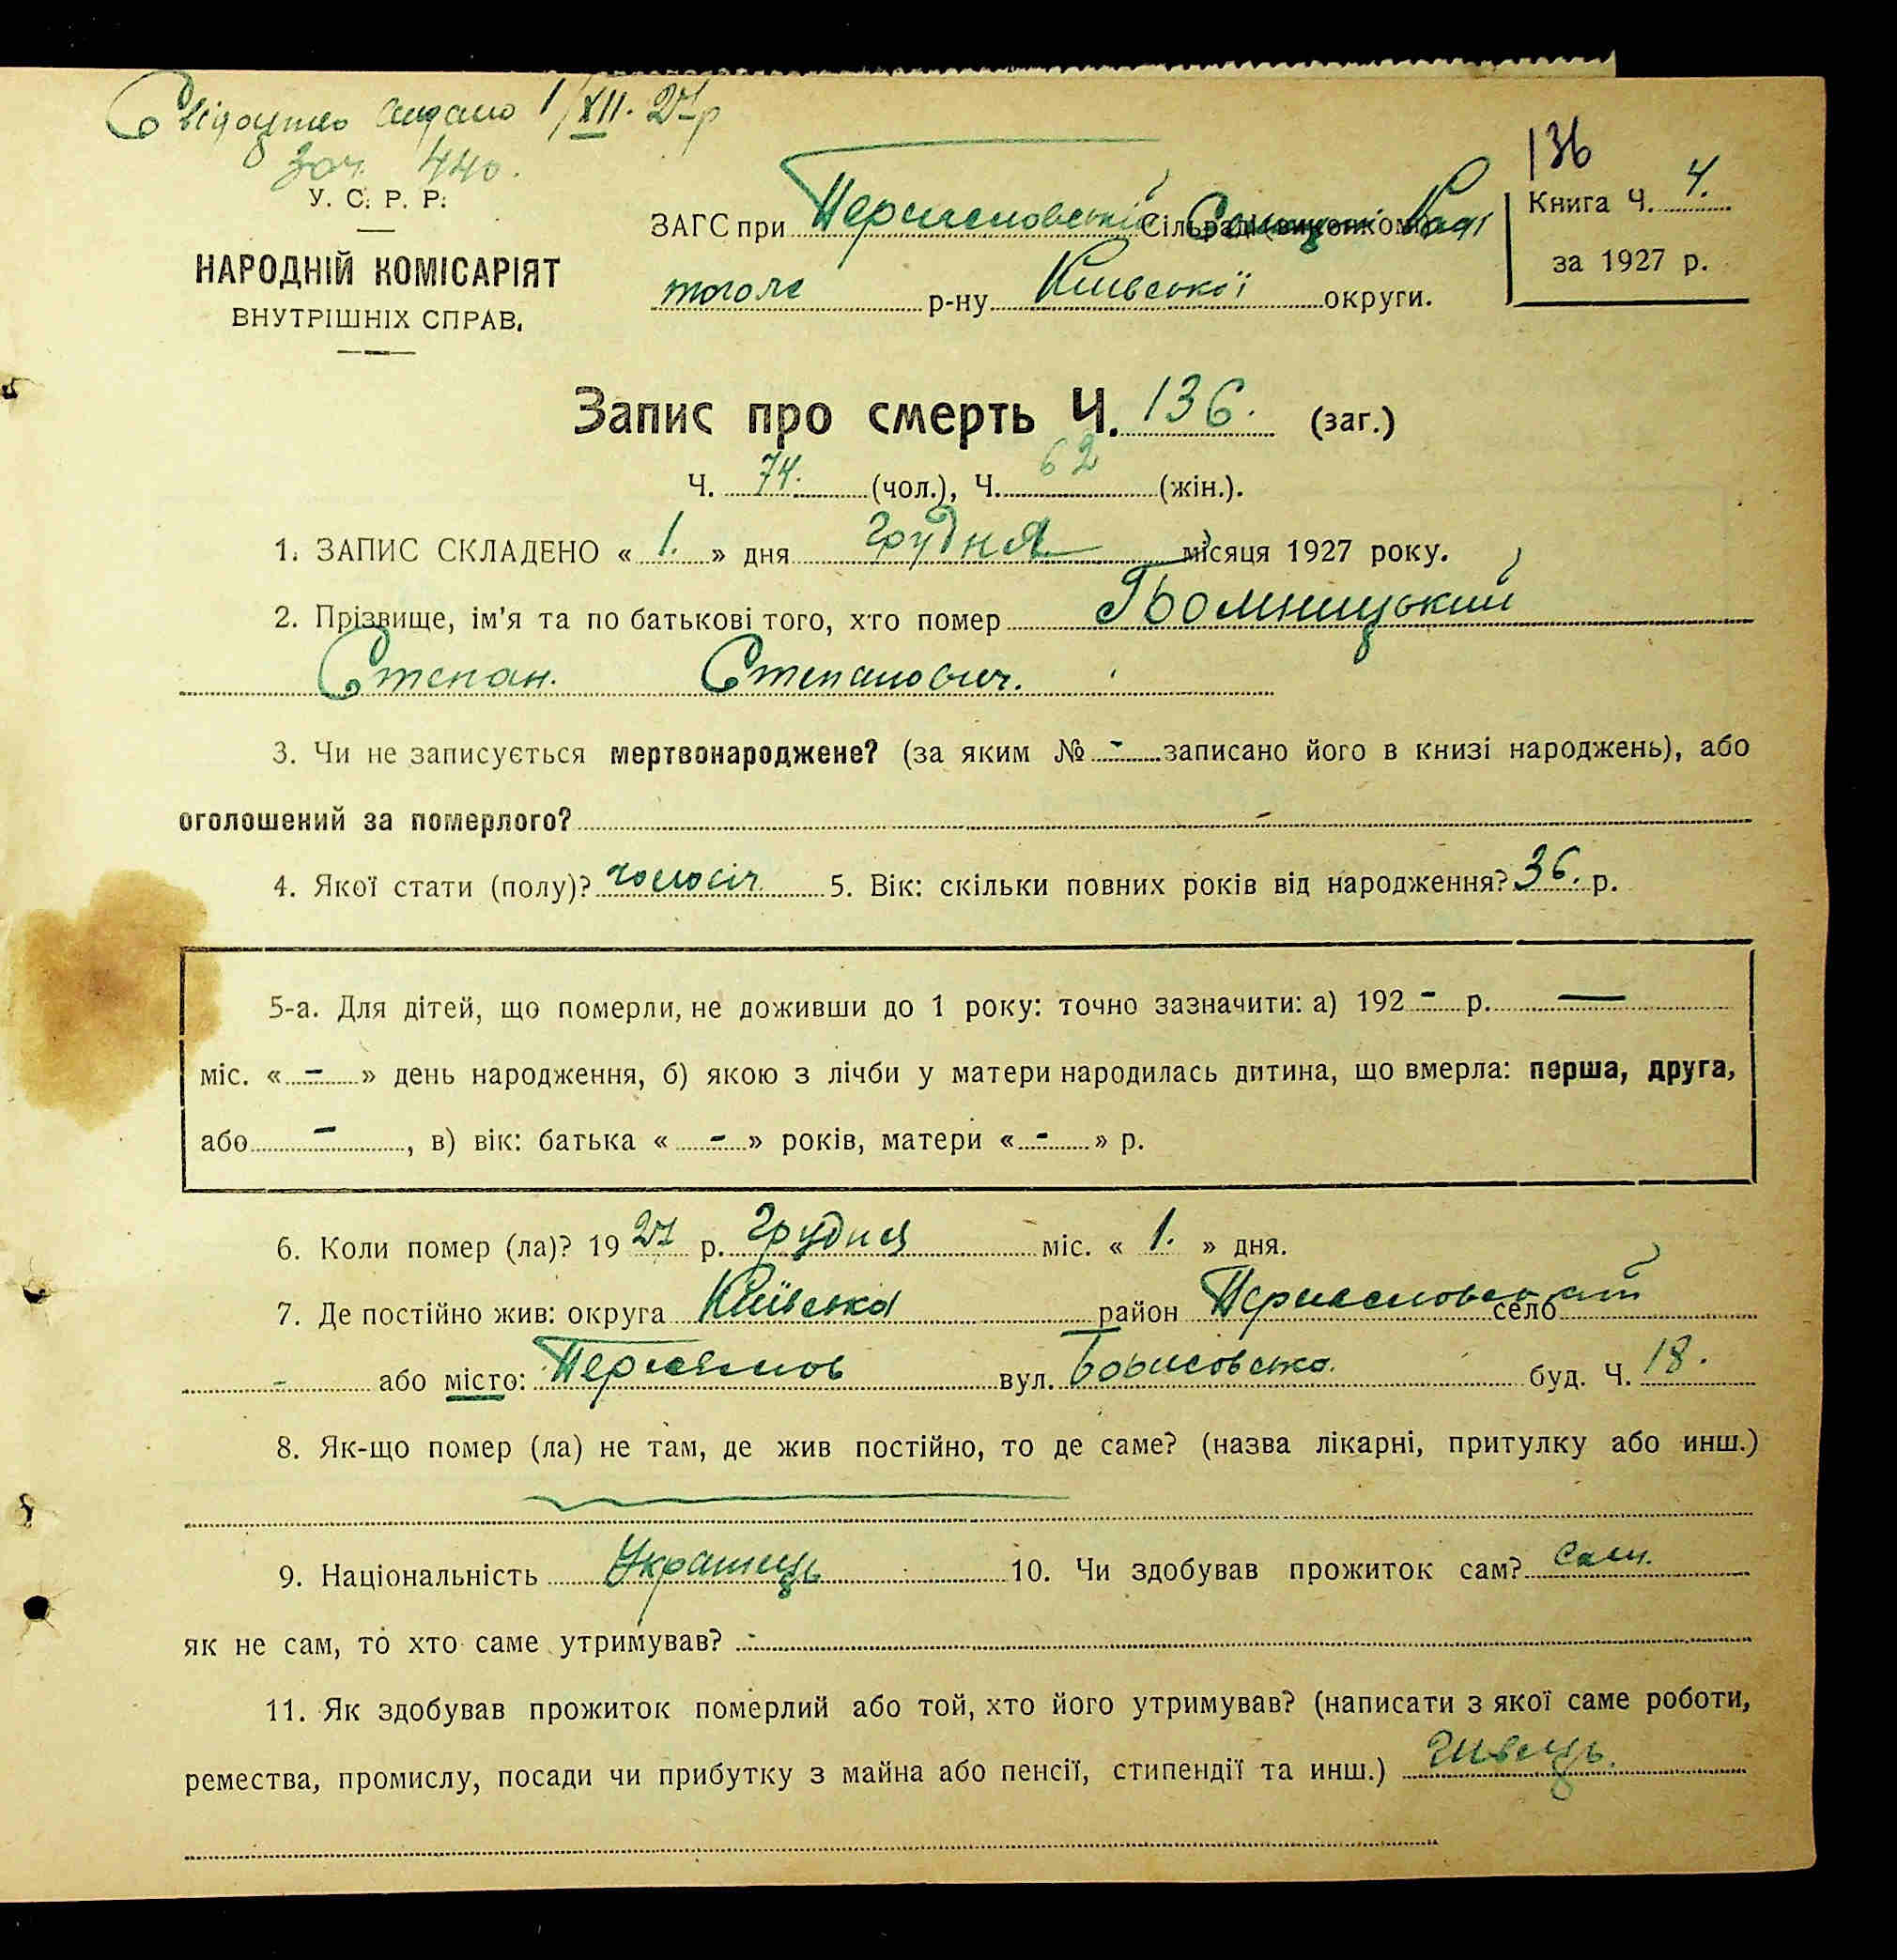 Свідоцтво видано 1/XII. 27 р
за ч. 440.
136
У. С. Р. Р.
НАРОДНІЙ КОМІСАРІЯТ
ВНУТРІШНІХ СПРАВ.
ЗАГС при Переяславській Селищній Раді
того ж р-ну Київської округи.
Книга Ч. 4.
за 1927 р.
Запис про смерть Ч. 136. (заг.)
Ч. 74. (чол.), Ч. 62 (жін.).
1. ЗАПИС СКЛАДЕНО « 1. » дня грудня місяця 1927 року.
2. Прізвище, ім'я та по батькові того, хто помер
Степан Степанович.
3. Чи не записується мертвонароджене? (за яким № - записано його в книзі народжень), або
оголошений за померлого? -
4. Якої стати (полу)? чоловіч. 5. Вік: скільки повних років від народження? 36. р.
5-а. Для дітей, що померли, не доживши до 1 року: точно зазначити: а) 192 - р. —
міс. « - » день народження, б) якою з лічби у матери народилась дитина, що вмерла: перша, друга,
або -, в) вік: батька « - » років, матери « - » р.
6. Коли помер (ла)? 19 27 р. грудня міс. « 1. » дня.
7. Де постійно жив: округа Київська район Переяславський село
- або місто: Переяслов вул. Борисовська буд. Ч. 18.
8. Як-що помер (ла) не там, де жив постійно, то де саме? (назва лікарні, притулку або инш.)
9. Національність Українець 10. Чи здобував прожиток сам? Сам.
як не сам, то хто саме утримував? -
11. Як здобував прожиток померлий або той, хто його утримував? (написати з якої саме роботи,
ремества, промислу, посади чи прибутку з майна або пенсії, стипендії та инш.) Швець.